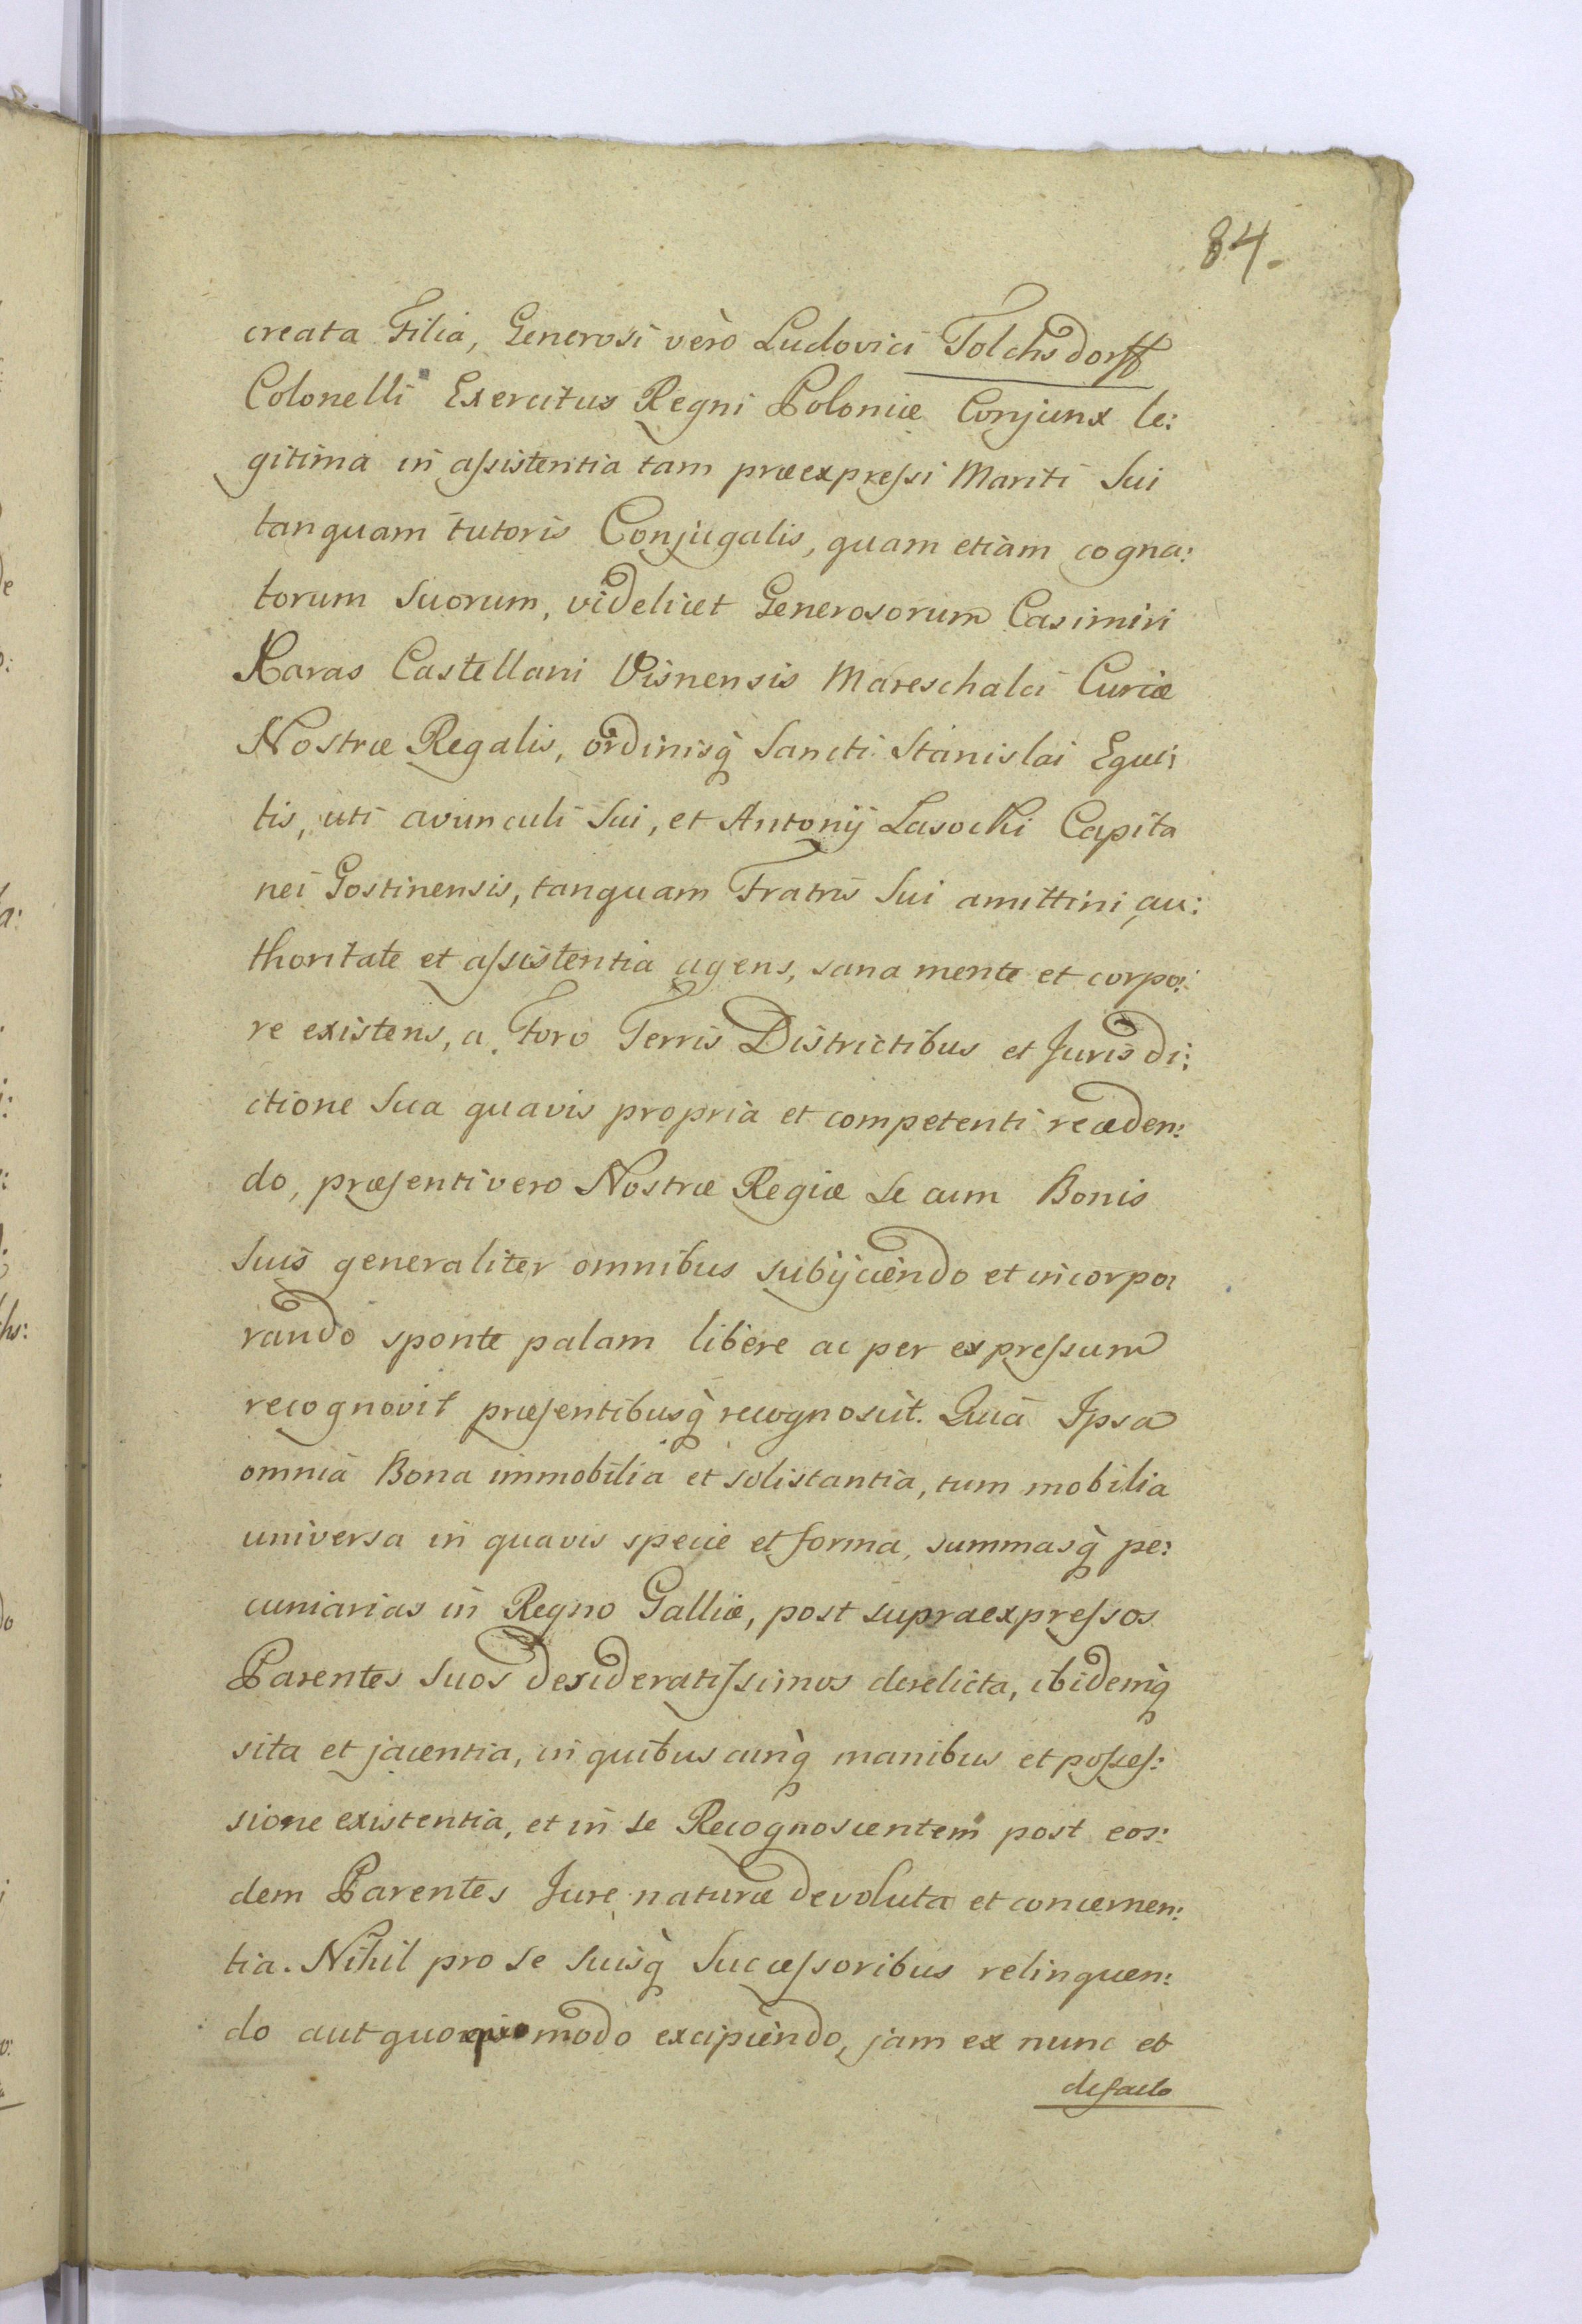 84.
creata Filia, Generosi vèro Ludovici Tolchsdorff
Colonelli Exercitus Regni Poloniæ Conjunx le:
gitima in aſsistentia tam præexpreſsi Mariti Sui
tanquam tutoris Conjugalis, quam etiam cogna:
torum Suorum, videlicet Generosorum Casimiri
Karas Castellani Visnensis Mareschalci Curiæ
Nostræ Regalis, ordinisq̀ Sancti Stanislai Equi:
tis, uti avunculi Sui, et Antonij Lasocki Capita
nei Gostinensis, tanquam Fratris Sui amittini, au:
thoritate et aſsistentia agens, sana mente et corpo:
re existens, a Foro Terris Districtibus et Jurisdi:
ctione Sua quavis propria et competenti recæden:
do, præſenti vero Nostræ Regiæ Se cum Bonis
Suis generaliter omnibus subijciendo et incorpo:
rando sponte palam libère ac per expreſsum
recognovit præſentibusq̀ recognoscit. Quia Ipsa
omnia Bona immobilia et solistantia, tum mobilia
universa in quavis specie et forma, summasq̀ pe:
cuniarias in Regno Galliæ, post supraexpreſsos
Parentes Suos desideratiſsimos derelicta, ibidemq̀
sita et jacentia, in quibuscunq̀ manibus et poſseſ:
sione existentia, et in Se Recognoscentem post eos:
dem Parentes Jure naturæ devoluta et concernen:
tia. Nihil pro Se Suisq̀ Succeſsoribus relinquen:
do aut quoquomodo excipiendo, jam ex nunc et
defacto